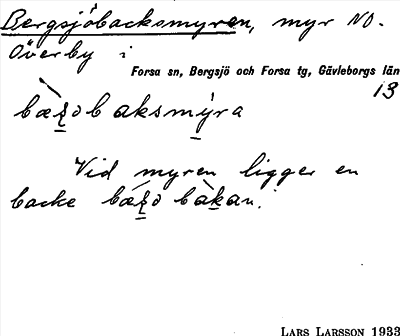 Bergsjöbacksmyren, myr NO.
Överby i
Forsa sn, Bergsjö och Forsa tg, Gävleborgs län
13
bæʂobaksmýra
Vid myren ligger en
backe bæʂo bàkan.
LARS LARSSON 1933